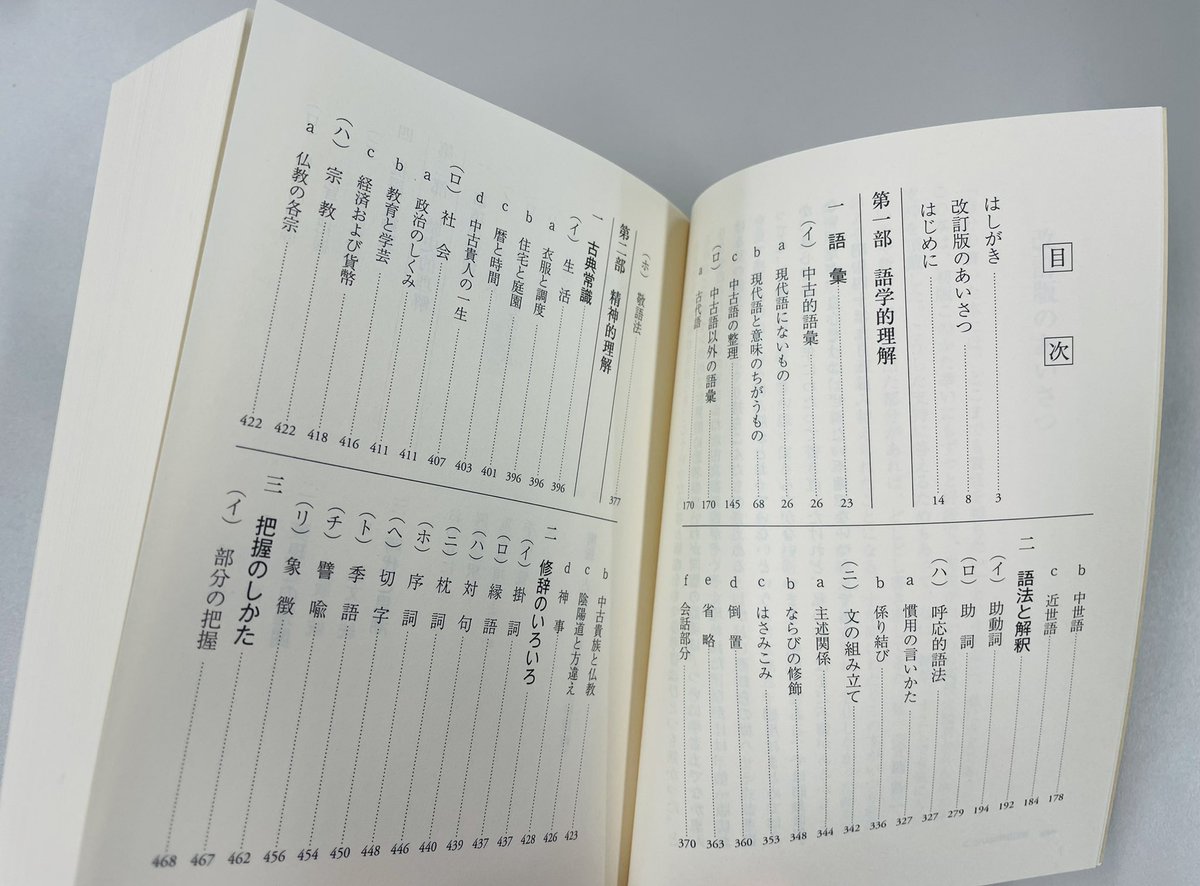 目次
はしがき 3
改訂版のあいさつ 8
はじめに 14
第一部 語学的理解
一 語彙 23
(イ) 中古的語彙 26
a 現代語にないもの 26
b 現代語と意味のちがうもの 68
c 中古語の整理 145
(ロ) 中古語以外の語彙 170
a 古代語 170
b 中世語 178
c 近世語 184
二 語法と解釈 192
(イ) 助動詞 194
(ロ) 助詞 279
(ハ) 呼応的語法 327
a 慣用の言いかた 327
b 係り結び 336
(ニ) 文の組み立て 342
a 主述関係 344
b ならびの修飾 348
c はさみこみ 353
d 倒置 360
e 省略 363
f 会話部分 370
(ホ) 敬語法 377
第二部 精神的理解
一 古典常識 396
(イ) 生活 396
a 衣服と調度 396
b 住宅と庭園 401
c 暦と時間 403
d 中古貴人の一生 407
(ロ) 社会 411
a 政治のしくみ 411
b 教育と学芸 416
c 経済および貨幣 418
(ハ) 宗教 422
a 仏教の各宗 422
b 中古貴族と仏教 423
c 陰陽道と方違え 426
d 神事 428
二 修辞のいろいろ 437
(イ) 掛詞 437
(ロ) 縁語 439
(ハ) 対句 440
(ニ) 枕詞 446
(ホ) 序詞 448
(ヘ) 切字 450
(ト) 季語 454
(チ) 譬喩 456
(リ) 象徴 462
三 把握のしかた 467
(イ) 部分の把握 468